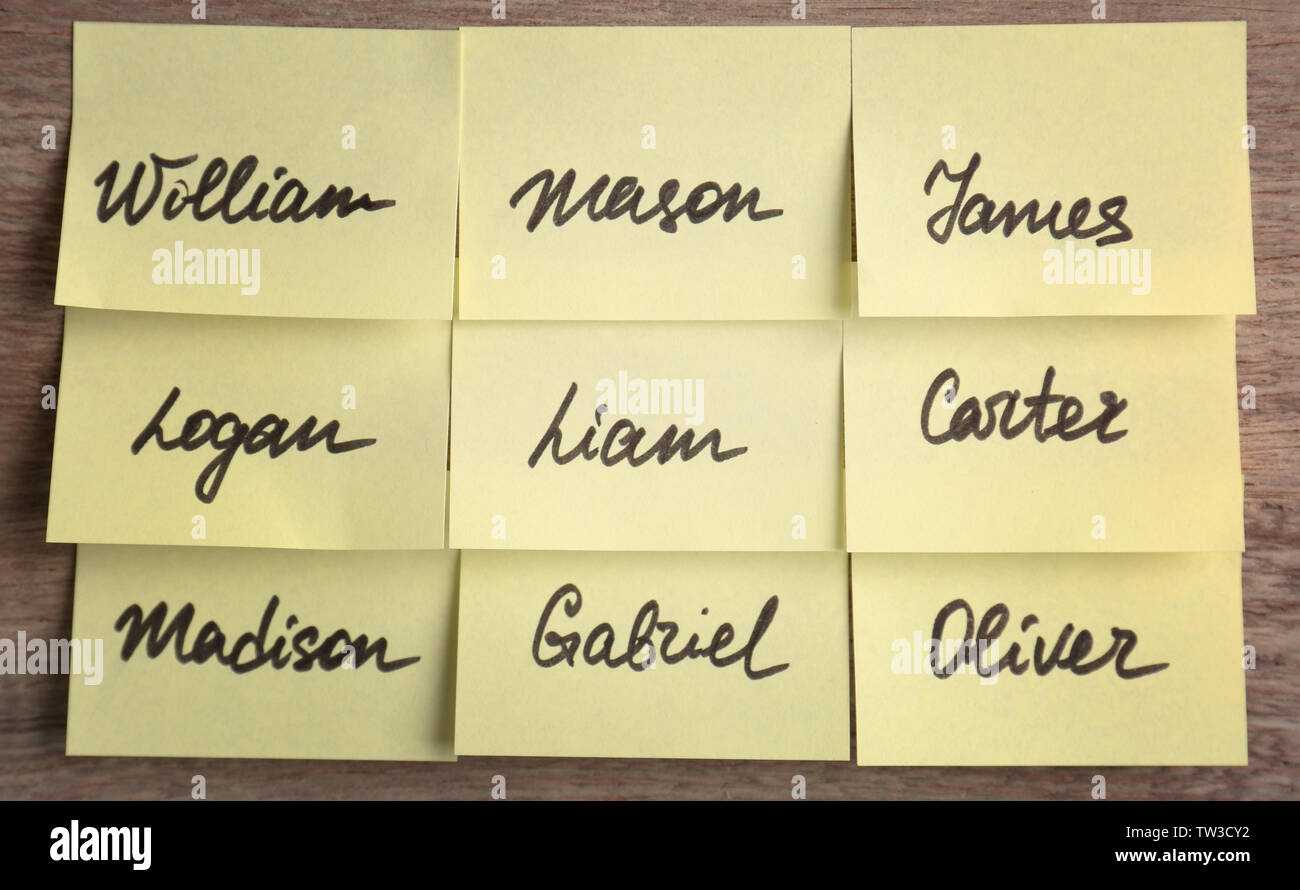 William Mason James
Logan Liam Carter
Madison Gabriel Oliver
alamy
alamy
Image ID: TW3CY2
www.alamy.com